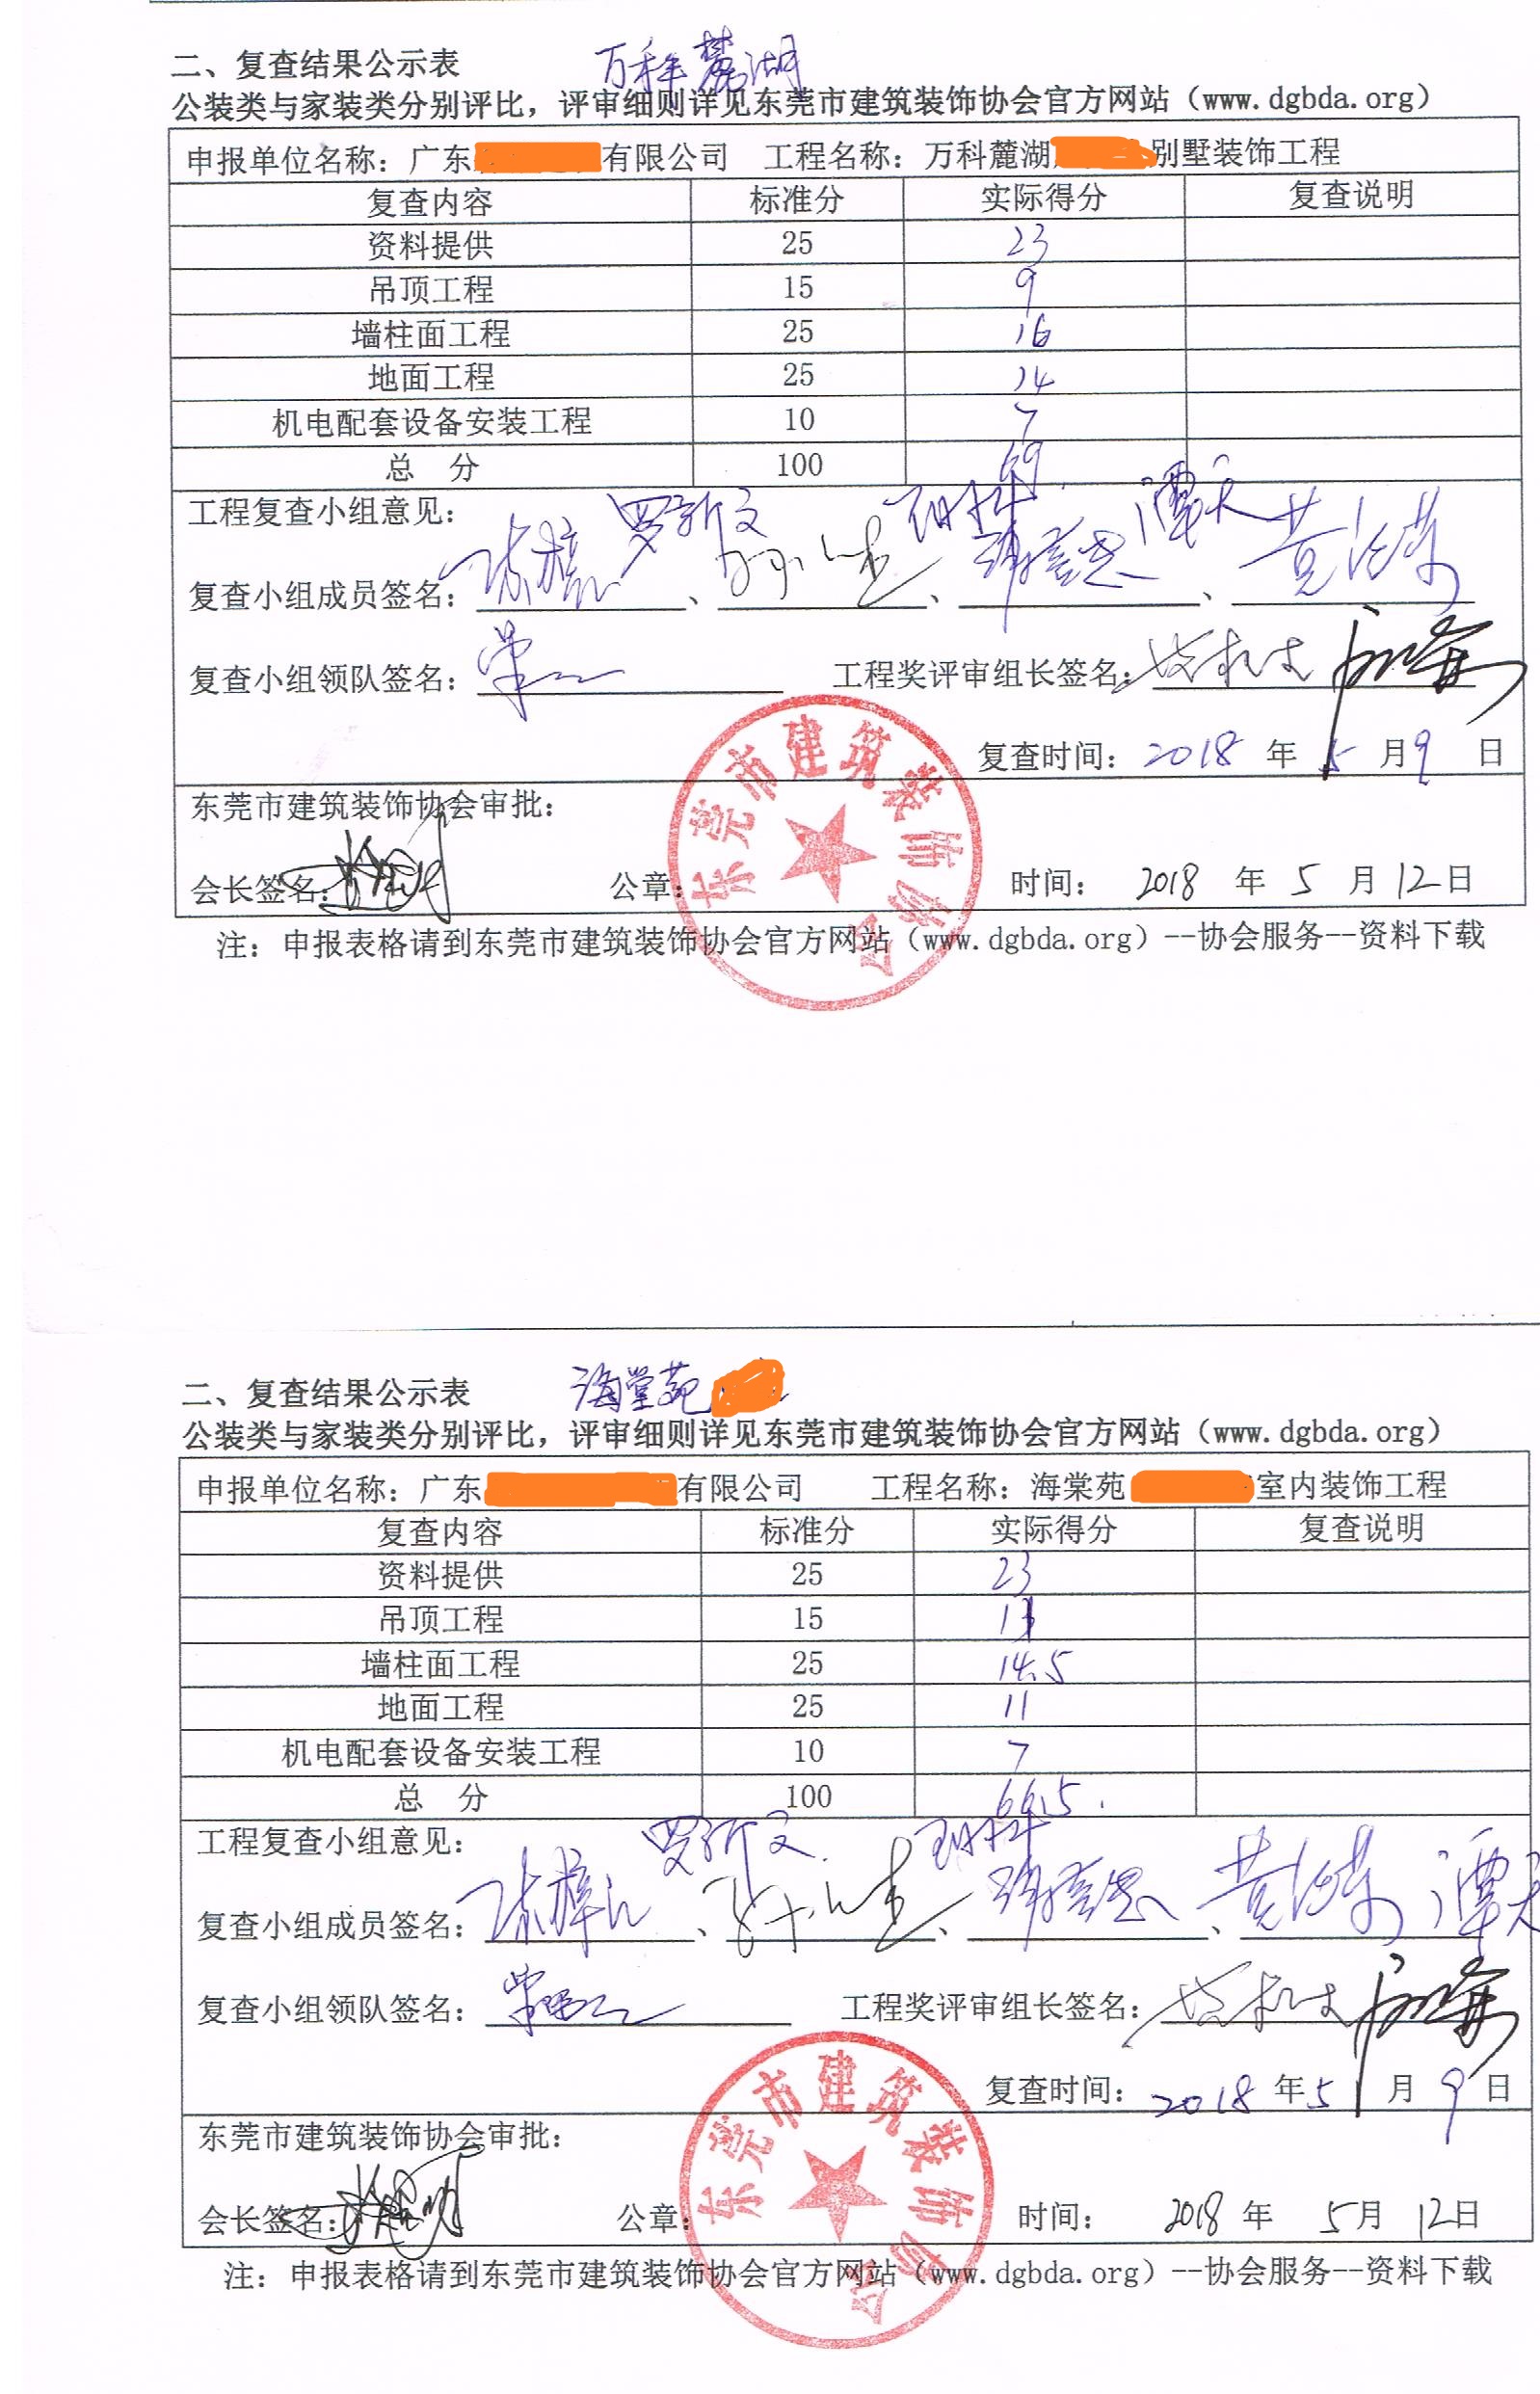 二、复查结果公示表 万科麓湖
公装类与家装类分别评比，评审细则详见东莞市建筑装饰协会官方网站（www.dgbda.org）
申报单位名称：广东 有限公司 工程名称：万科麓湖 别墅装饰工程
复查内容 标准分 实际得分 复查说明
资料提供 25 23
吊顶工程 15 9
墙柱面工程 25 16
地面工程 25 14
机电配套设备安装工程 10 7
总 分 100 69
工程复查小组意见：
罗新文 谭天
复查小组成员签名： 、 、 、
复查小组领队签名： 工程奖评审组长签名：
复查时间：2018 年 5 月 9 日
东莞市建筑装饰协会审批：
会长签名： 公章： 时间： 2018 年 5 月 12 日
东莞市建筑装饰协会
注：申报表格请到东莞市建筑装饰协会官方网站（www.dgbda.org）--协会服务--资料下载
二、复查结果公示表 海堂苑
公装类与家装类分别评比，评审细则详见东莞市建筑装饰协会官方网站（www.dgbda.org）
申报单位名称：广东 有限公司 工程名称：海棠苑 室内装饰工程
复查内容 标准分 实际得分 复查说明
资料提供 25 23
吊顶工程 15 11
墙柱面工程 25 14.5
地面工程 25 11
机电配套设备安装工程 10 7
总 分 100 66.5
工程复查小组意见：
罗新文
复查小组成员签名： 、 、 、 谭天
复查小组领队签名： 工程奖评审组长签名：
复查时间：2018 年 5 月 9 日
东莞市建筑装饰协会审批：
会长签名： 公章： 时间： 2018 年 5 月 12 日
东莞市建筑装饰协会
注：申报表格请到东莞市建筑装饰协会官方网站（www.dgbda.org）--协会服务--资料下载